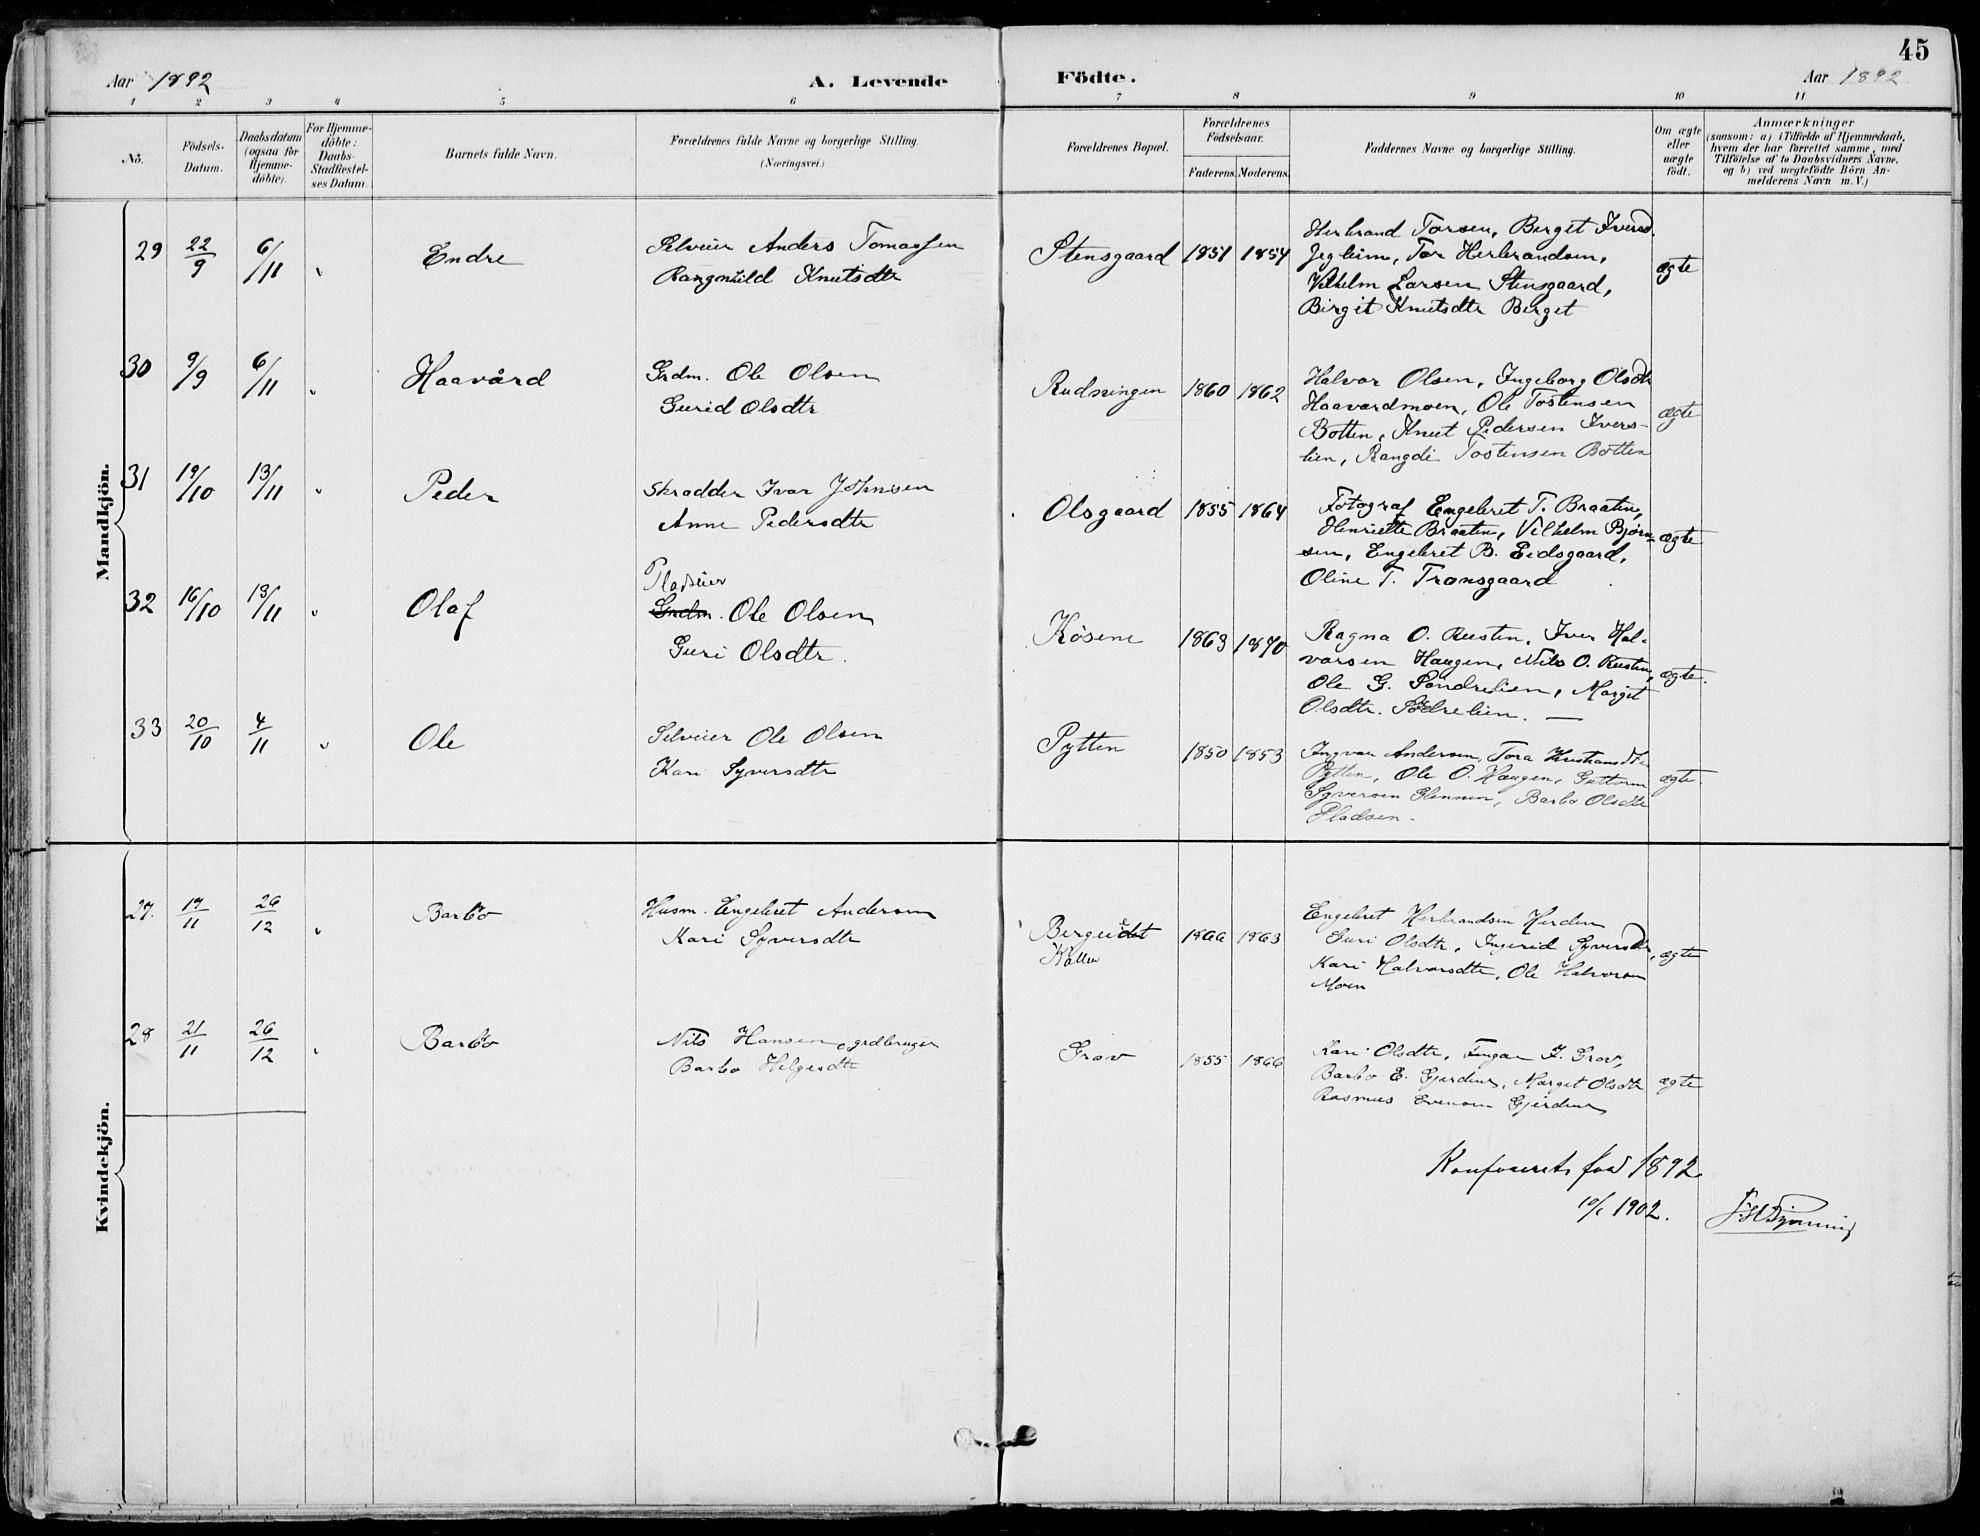 45
Aar 1892 A. Levende Födte. Aar 1892
1 2 3 4 5 6 7 8 9 10 11
No. Födsels-Datum. Daabsdatum (ogsaa for Hjemmedöbte). For Hjemmedöbte: Daabs-Stadfæstelses Datum. Barnets fulde Navn. Forældrenes fulde Navne og borgerlige Stilling. (Næringsvei.) Forældrenes Bopæl. Forældrenes Födselsaar. Faderens. Moderens. Faddernes Navne og borgerlige Stilling. Om ægte eller uægte födt. Anmærkninger (saasom: a) i Tilfælde af Hjemmedaab, hvem der har forrettet samme, med Tilföielse af to Daabsvidners Navne, og b) ved uægtefödte Börn Anmelderens Navn m. V.)
Mandkjön.
29 22/9 6/11 " Endre Selveier Anders Tomassen Stensgaard 1851 1854 Herbrand Torsen, Birget Iversd.
Rangnhild Knutsdtr Jegleim, Tor Herbrandsen, ægte
Vilhelm Larsen Stensgaard,
Birgit Knutsdtr Berget
30 9/9 6/11 " Haavård Grdm. Ole Olsen Rudningen 1860 1862 Halvor Olsen, Ingeborg Olsdtr
Gurid Olsdtr Haavardmoen, Ole Tostensen ægte
Botten, Knut Pedersen Ivers-
lien, Rangdi Tostensen Botten
31 19/10 13/11 " Peder Skradder Ivar Johnsen Olsgaard 1855 1864 Fotograf Engebret T. Braaten,
Anne Pedersdtr Henriette Braaten, Vilhelm Bjørn- ægte
sen, Engebret B. Eidsgaard,
Oline T. Tronsgaard
32 16/10 13/11 " Olaf Pladseier
Grdm. Ole Olsen Kösene 1863 1870 Ragna O. Rusten, Iver Hal-
Guri Olsdtr. vorsen Haugen, Nils O. Rusten, ægte.
Ole G. Søndrelien, Marget
Olsdtr. Södrelien. —
33 20/10 4/11 " Ole Selveier Ole Olsen Pytten 1850 1853 Ingvar Andersen, Tora Kristiansdtr
Kari Syversdtr Pytten, Ole O. Haugen, Guttorm ægte.
Syversen Glennen, Barbo Olsdtr
Pladsen.
Kvindekjön.
27. 17/11 26/12 " Barbo Husm. Engebret Andersen Bergeidet 1866 1863 Engebret Herbrandsen
Kari Syversdtr Guri Olsdtr, Ingerid Syversdtr, ægte
Kari Halvorsdtr, Ole Halvorsen
Moen
28 21/11 26/12 " Barbo Nils Hansen, grdbruger Grov 1855 1866 Kari Olsdtr, Grov,
Barbo Helgesdtr Barbo E. Gjerdene, Marget Olsdtr ægte
Rasmus Evensen Gjerdene
1892
1902.